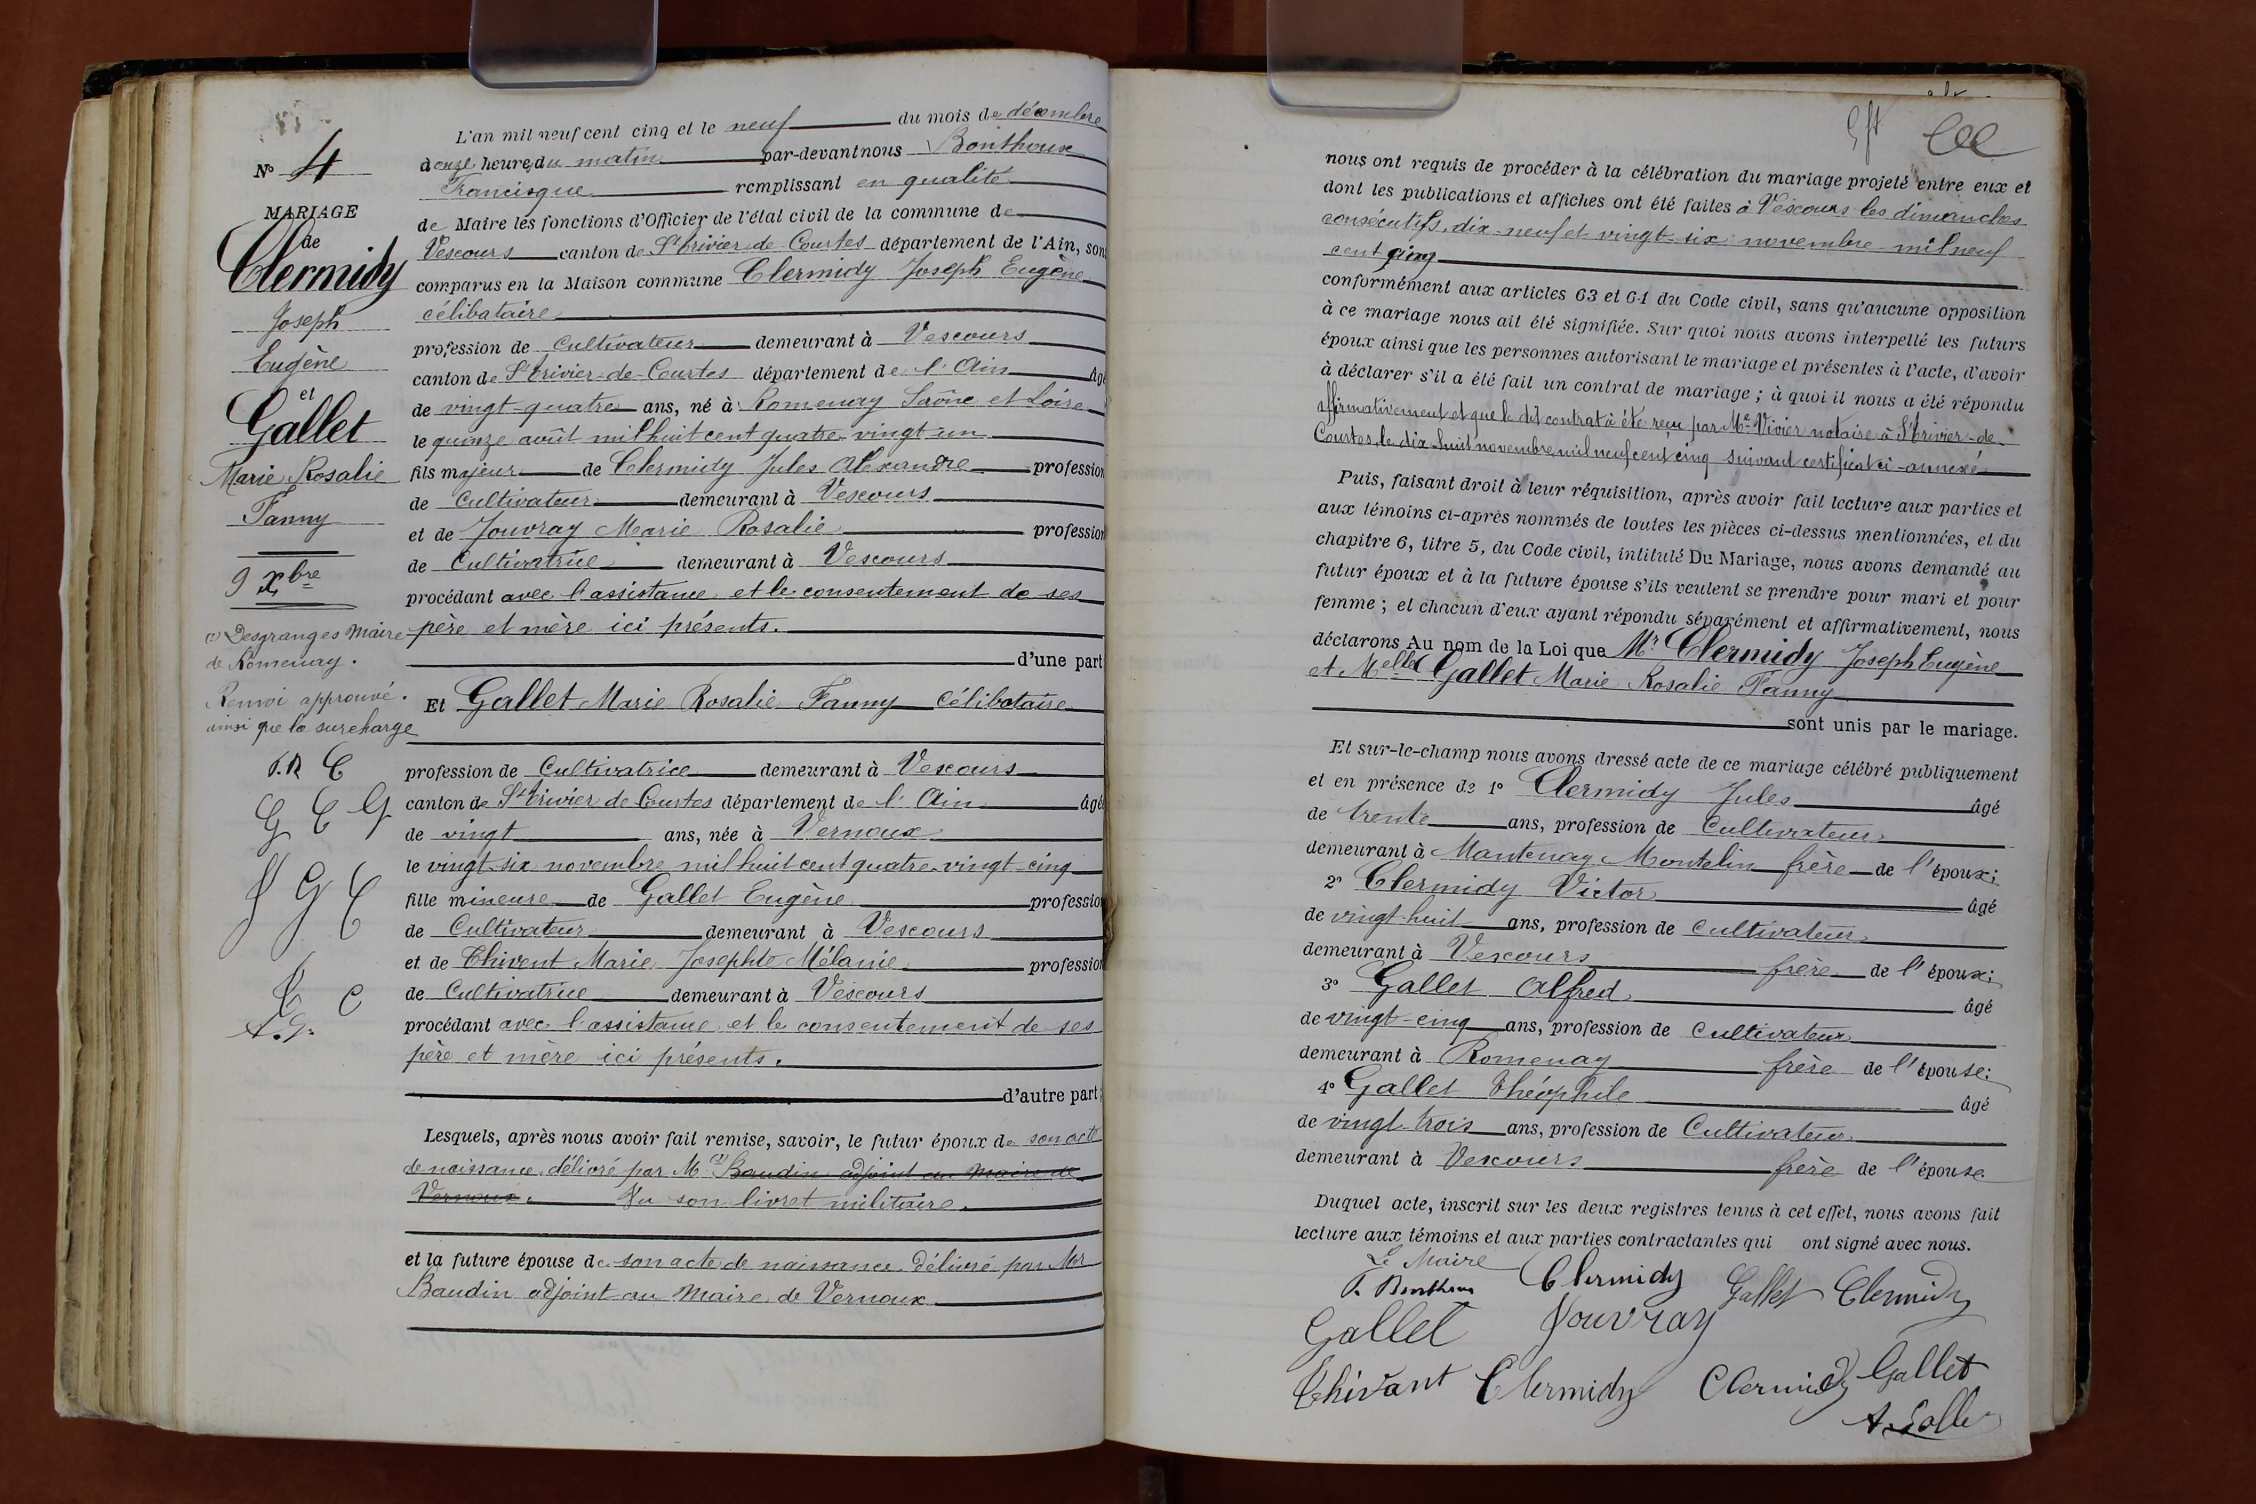 N° 4
MARIAGE
de
Clermidy
Joseph
Eugène
et
Gallet
Marie Rosalie
Fanny
9 Xbre
(1) Desgranges Maire
de Romenay.
Renvoi approuvé.
ainsi que la surcharge
L'an mil neuf cent cinq et le neuf du mois de décembre
à onze heures du matin par-devant nous Bonthoux
Francisque remplissant en qualité
de Maire les fonctions d'Officier de l'état civil de la commune de
Vescours canton de St Trivier-de-Courtes département de l'Ain, sont
comparus en la Maison commune Clermidy Joseph Eugène
célibataire
profession de Cultivateur demeurant à Vescours
canton de St Trivier-de-Courtes département de l'Ain âgé
de vingt-quatre ans, né à Romenay Saône et Loire
le quinze août mil huit cent quatre-vingt-un
fils majeur de Clermidy Jules Alexandre profession
de Cultivateur demeurant à Vescours
et de Jouvray Marie Rosalie profession
de Cultivatrice demeurant à Vescours
procédant avec l'assistance et le consentement de ses
père et mère ici présents.
d'une part
Et Gallet Marie Rosalie Fanny Célibataire
profession de Cultivatrice demeurant à Vescours
canton de St Trivier de Courtes département de l'Ain âgée
de vingt ans, née à Vernoux
le vingt-six novembre mil huit cent quatre-vingt-cinq
fille mineure de Gallet Eugène profession
de Cultivateur demeurant à Vescours
et de Thivent Marie Josephte Mélanie profession
de Cultivatrice demeurant à Vescours
procédant avec l'assistance et le consentement de ses
père et mère ici présents.
d'autre part ;
Lesquels, après nous avoir fait remise, savoir, le futur époux de son acte
de naissance délivré par M. (1) Baudin adjoint au Maire de
Vernoux. Vu son livret militaire.
et la future épouse de son acte de naissance délivré par Mr
Baudin adjoint au Maire de Vernoux
nous ont requis de procéder à la célébration du mariage projeté entre eux et
dont les publications et affiches ont été faites à Vescours les dimanches
consécutifs, dix-neuf et vingt-six novembre mil neuf
cent cinq
conformément aux articles 63 et 64 du Code civil, sans qu'aucune opposition
à ce mariage nous ait été signifiée. Sur quoi nous avons interpellé les futurs
époux ainsi que les personnes autorisant le mariage et présentes à l'acte, d'avoir
à déclarer s'il a été fait un contrat de mariage ; à quoi il nous a été répondu
affirmativement et que le dit contrat à été reçu par Me Vivier notaire à St Trivier-de-
Courtes, le dix huit novembre mil neuf cent cinq suivant certificat ci-annexé
Puis, faisant droit à leur réquisition, après avoir fait lecture aux parties et
aux témoins ci-après nommés de toutes les pièces ci-dessus mentionnées, et du
chapitre 6, titre 5, du Code civil, intitulé Du Mariage, nous avons demandé au
futur époux et à la future épouse s'ils veulent se prendre pour mari et pour
femme ; et chacun d'eux ayant répondu séparément et affirmativement, nous
déclarons Au nom de la Loi que Mr Clermidy Joseph Eugène
et Melle Gallet Marie Rosalie Fanny
sont unis par le mariage.
Et sur-le-champ nous avons dressé acte de ce mariage célébré publiquement
et en présence de 1° Clermidy Jules âgé
de trente ans, profession de Cultivateur
demeurant à Mantenay Montelin frère de l'époux ;
2° Clermidy Victor âgé
de vingt-huit ans, profession de Cultivateur
demeurant à Vescours frère de l'époux ;
3° Gallet Alfred âgé
de vingt-cinq ans, profession de Cultivateur
demeurant à Romenay frère de l'épouse ;
4° Gallet Théophile âgé
de vingt-trois ans, profession de Cultivateur
demeurant à Vescours frère de l'épouse
Duquel acte, inscrit sur les deux registres tenus à cet effet, nous avons fait
lecture aux témoins et aux parties contractantes qui ont signé avec nous.
Le Maire
F. Bonthoux Clermidy Gallet Clermidy
Gallet Jouvray
Thivant Clermidy Clermidy Gallet
A. Gallet